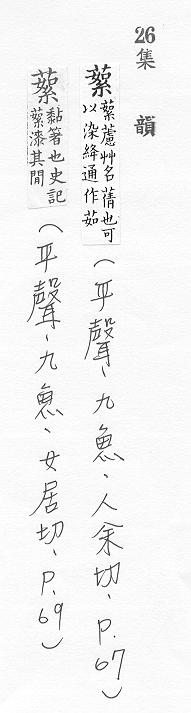 26集韻
蕠 蕠藘艸名蒨也可以染絳通作茹（平聲、九魚、人余切、P.67）
蕠 黏箸也史記蕠漆其閒（平聲、九魚、女居切、P.69）